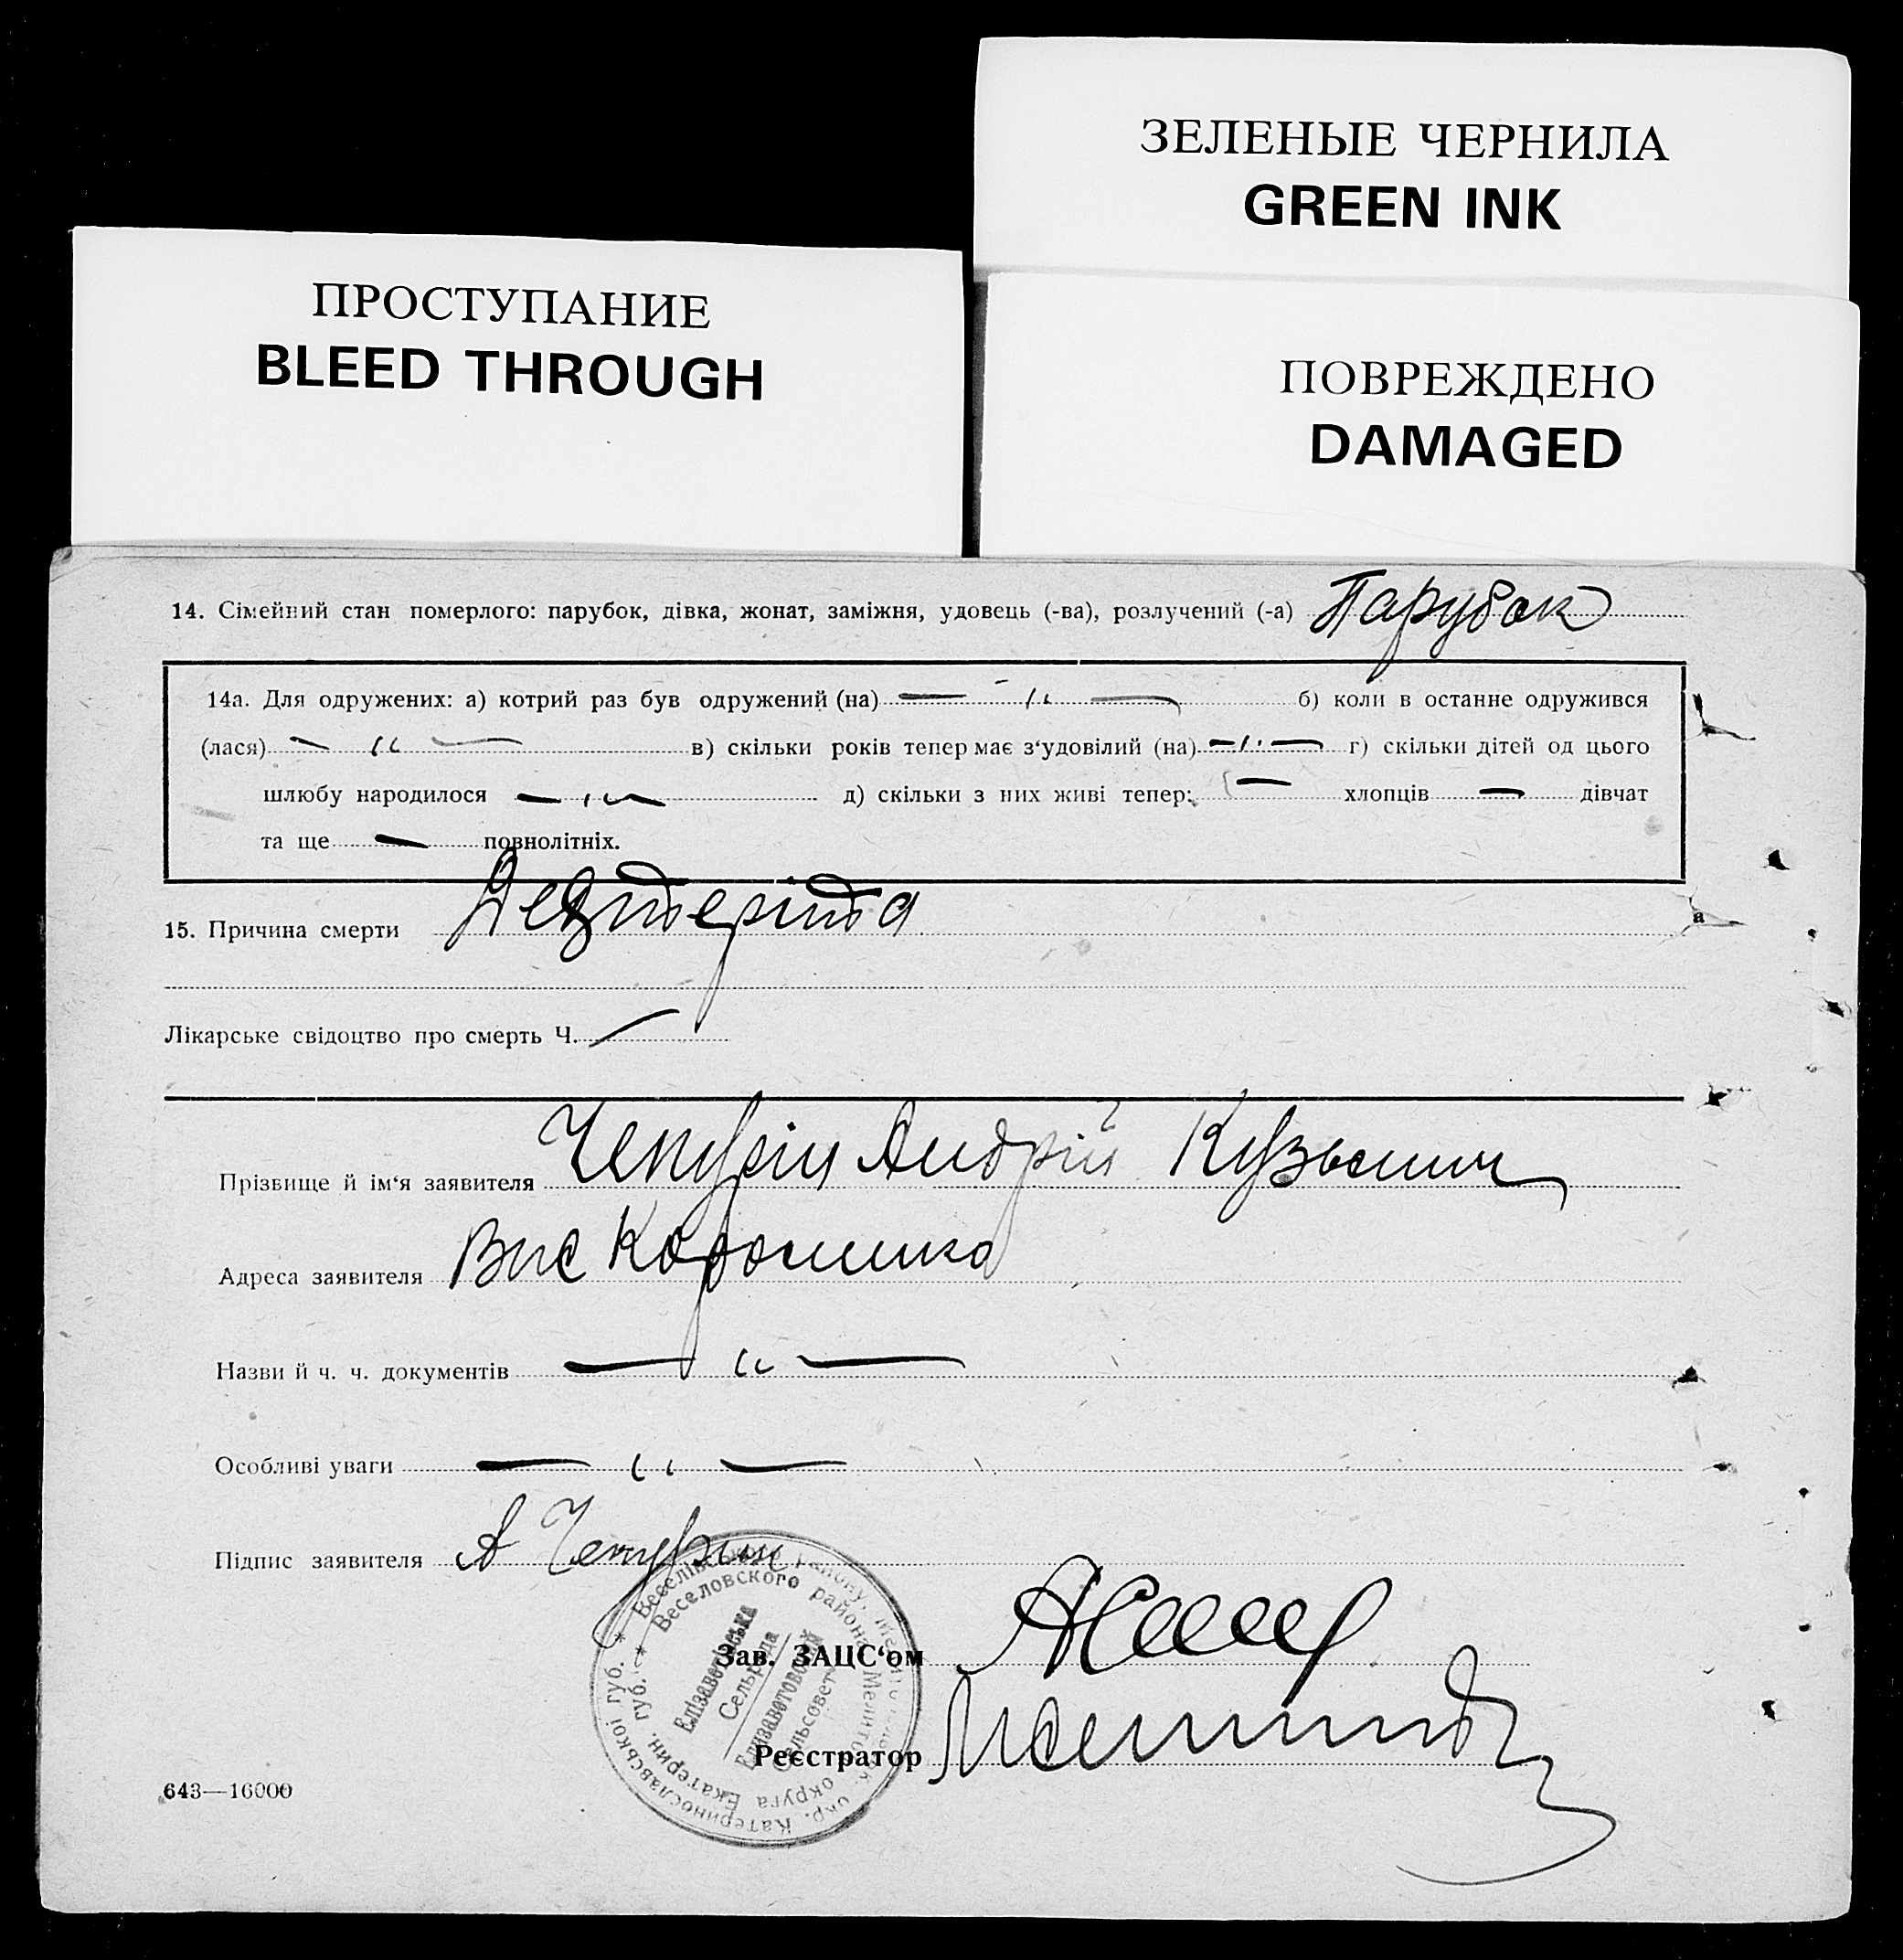 ЗЕЛЕНЫЕ ЧЕРНИЛА
GREEN INK
ПРОСТУПАНИЕ
BLEED THROUGH
ПОВРЕЖДЕНО
DAMAGED
14. Сімейний стан померлого: парубок, дівка, жонат, заміжня, удовець (-ва), розлучений (-а) Парубок
14а. Для одружених: а) котрий раз був одружений (на) — " — б) коли в останне одружився
(лася) — " — в) скільки років тепер має з'удовілий (на) — " — г) скільки дітей од цього
шлюбу народилося — " — д) скільки з них живі тепер: — хлопців — дівчат
та ще — повнолітніх.
15. Причина смерти
Лікарське свідоцтво про смерть Ч. —
Прізвище й ім'я заявителя Чепурін Андрій Кузьмич
Адреса заявителя Вис
Назви й ч. ч. документів — " —
Особливі уваги — " —
Підпис заявителя А Чепурин
Зав. ЗАЦС'ом
Реєстратор
* Веселівського району, Мелітопольск. окр. Катеринославської губ.
* Веселовского района Мелитоп. округа Екатерин. губ.
Елізаветівська
Сельрада
Елизаветовский
Сельсовет
643—16000